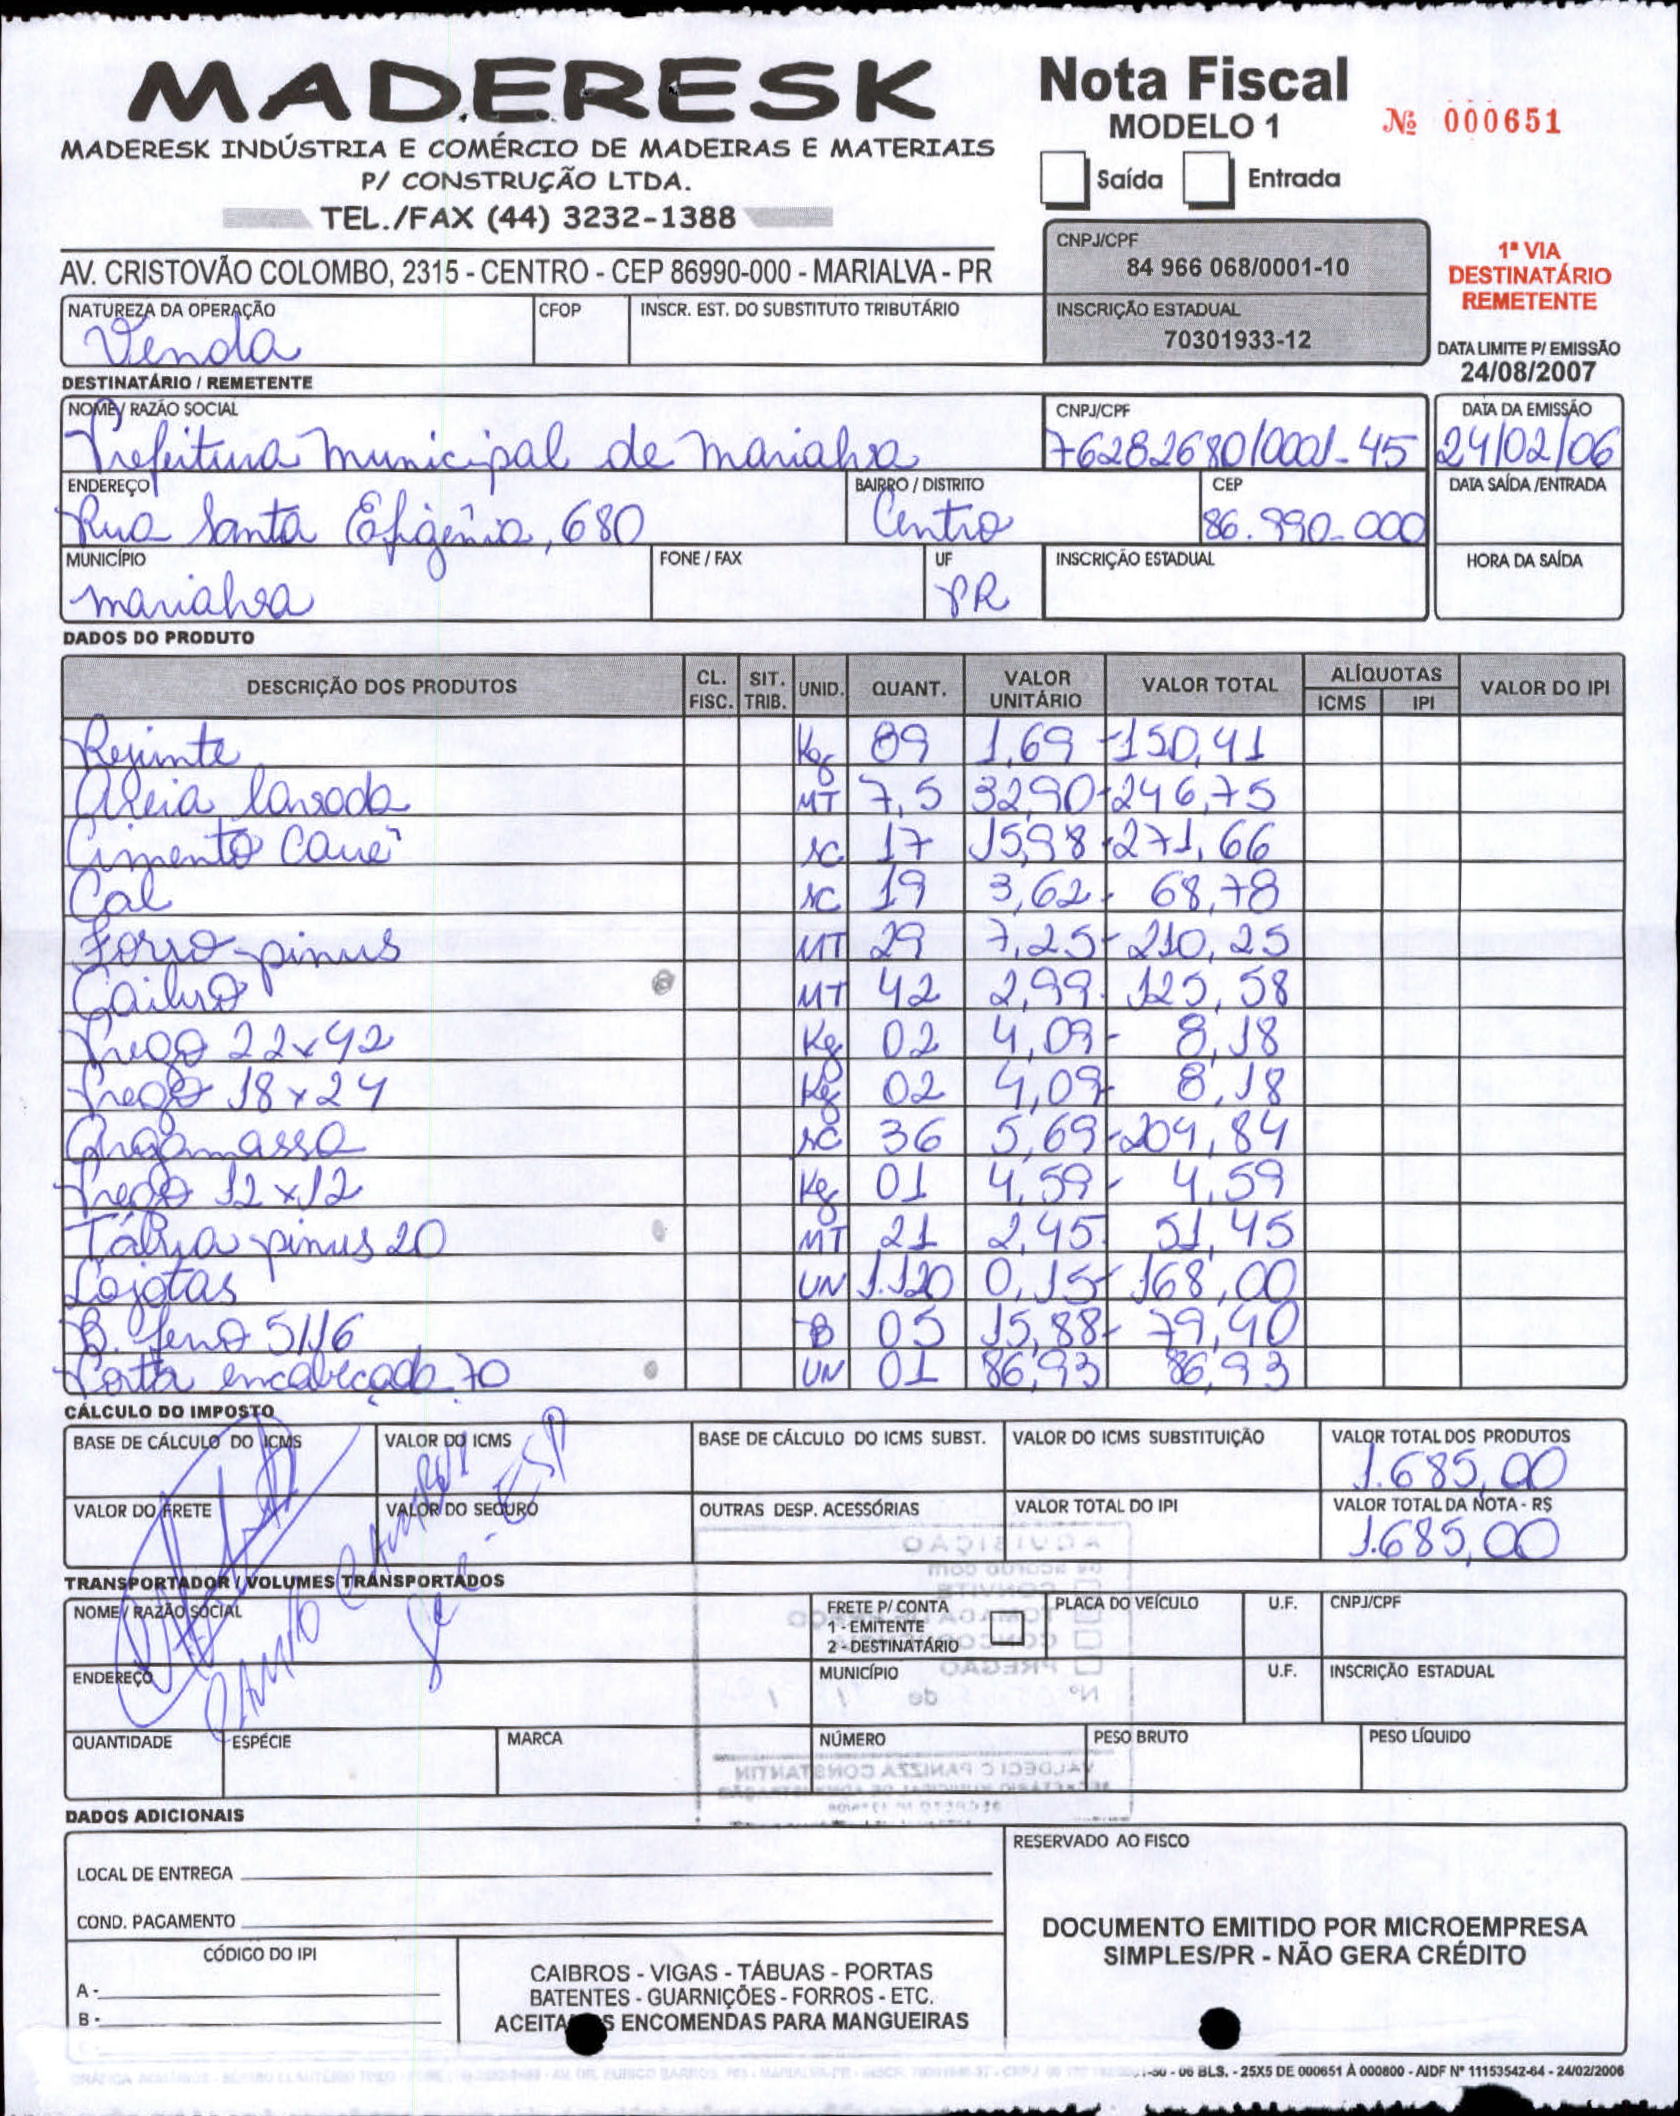 MADERESK
MADERESK INDÚSTRIA E COMÉRCIO DE MADEIRAS E MATERIAIS
P/ CONSTRUÇÃO LTDA.
TEL./FAX (44) 3232-1388
AV. CRISTOVÃO COLOMBO, 2315 - CENTRO - CEP 86990-000 - MARIALVA - PR
Nota Fiscal
MODELO 1
Nº 000651
Saída Entrada
CNPJ/CPF
84 966 068/0001-10
INSCRIÇÃO ESTADUAL
70301933-12
1ª VIA
DESTINATÁRIO
REMETENTE
DATA LIMITE P/ EMISSÃO
24/08/2007
NATUREZA DA OPERAÇÃO CFOP INSCR. EST. DO SUBSTITUTO TRIBUTÁRIO
Venda
DESTINATÁRIO / REMETENTE
NOME / RAZÃO SOCIAL CNPJ/CPF DATA DA EMISSÃO
Prefeitura Municipal de Marialva 76282680/0001-45 24/02/06
ENDEREÇO BAIRRO / DISTRITO CEP DATA SAÍDA /ENTRADA
Rua Santa Efigênia, 680 Centro 86.990-000
MUNICÍPIO FONE / FAX UF INSCRIÇÃO ESTADUAL HORA DA SAÍDA
Marialva PR
DADOS DO PRODUTO
DESCRIÇÃO DOS PRODUTOS CL. FISC. SIT. TRIB. UNID. QUANT. VALOR UNITÁRIO VALOR TOTAL ALÍQUOTAS ICMS IPI VALOR DO IPI
Rejunte Kg 89 1,69 - 150,41
Areia lavada MT 7,5 32,90 - 246,75
Cimento Cauê SC 17 15,98 - 271,66
Cal SC 19 3,62 - 68,78
Forro pinus MT 29 7,25 - 210,25
Caibro MT 42 2,99 - 125,58
Prego 22x42 Kg 02 4,09 - 8,18
Prego 18x24 Kg 02 4,09 - 8,18
Argamassa SC 36 5,69 - 204,84
Prego 12x12 Kg 01 4,59 - 4,59
Tábua pinus 20 MT 21 2,45 - 51,45
Lajotas UN 1.120 0,15 - 168,00
B. ferro 5/16 B 05 15,88 - 79,40
Porta encabeçada 70 UN 01 86,93 86,93
CÁLCULO DO IMPOSTO
BASE DE CÁLCULO DO ICMS VALOR DO ICMS BASE DE CÁLCULO DO ICMS SUBST. VALOR DO ICMS SUBSTITUIÇÃO VALOR TOTAL DOS PRODUTOS
1.685,00
VALOR DO FRETE VALOR DO SEGURO OUTRAS DESP. ACESSÓRIAS VALOR TOTAL DO IPI VALOR TOTAL DA NOTA - R$
1.685,00
TRANSPORTADOR / VOLUMES TRANSPORTADOS
NOME / RAZÃO SOCIAL FRETE P/ CONTA PLACA DO VEÍCULO U.F. CNPJ/CPF
1 - EMITENTE
2 - DESTINATÁRIO
ENDEREÇO MUNICÍPIO U.F. INSCRIÇÃO ESTADUAL
QUANTIDADE ESPÉCIE MARCA NÚMERO PESO BRUTO PESO LÍQUIDO
DADOS ADICIONAIS
LOCAL DE ENTREGA
COND. PAGAMENTO
CÓDIGO DO IPI
A -
B -
CAIBROS - VIGAS - TÁBUAS - PORTAS
BATENTES - GUARNIÇÕES - FORROS - ETC.
ENCOMENDAS PARA MANGUEIRAS
RESERVADO AO FISCO
DOCUMENTO EMITIDO POR MICROEMPRESA
SIMPLES/PR - NÃO GERA CRÉDITO
06 BLS. - 25X5 DE 000651 À 000800 - AIDF Nº 11153542-64 - 24/02/2006